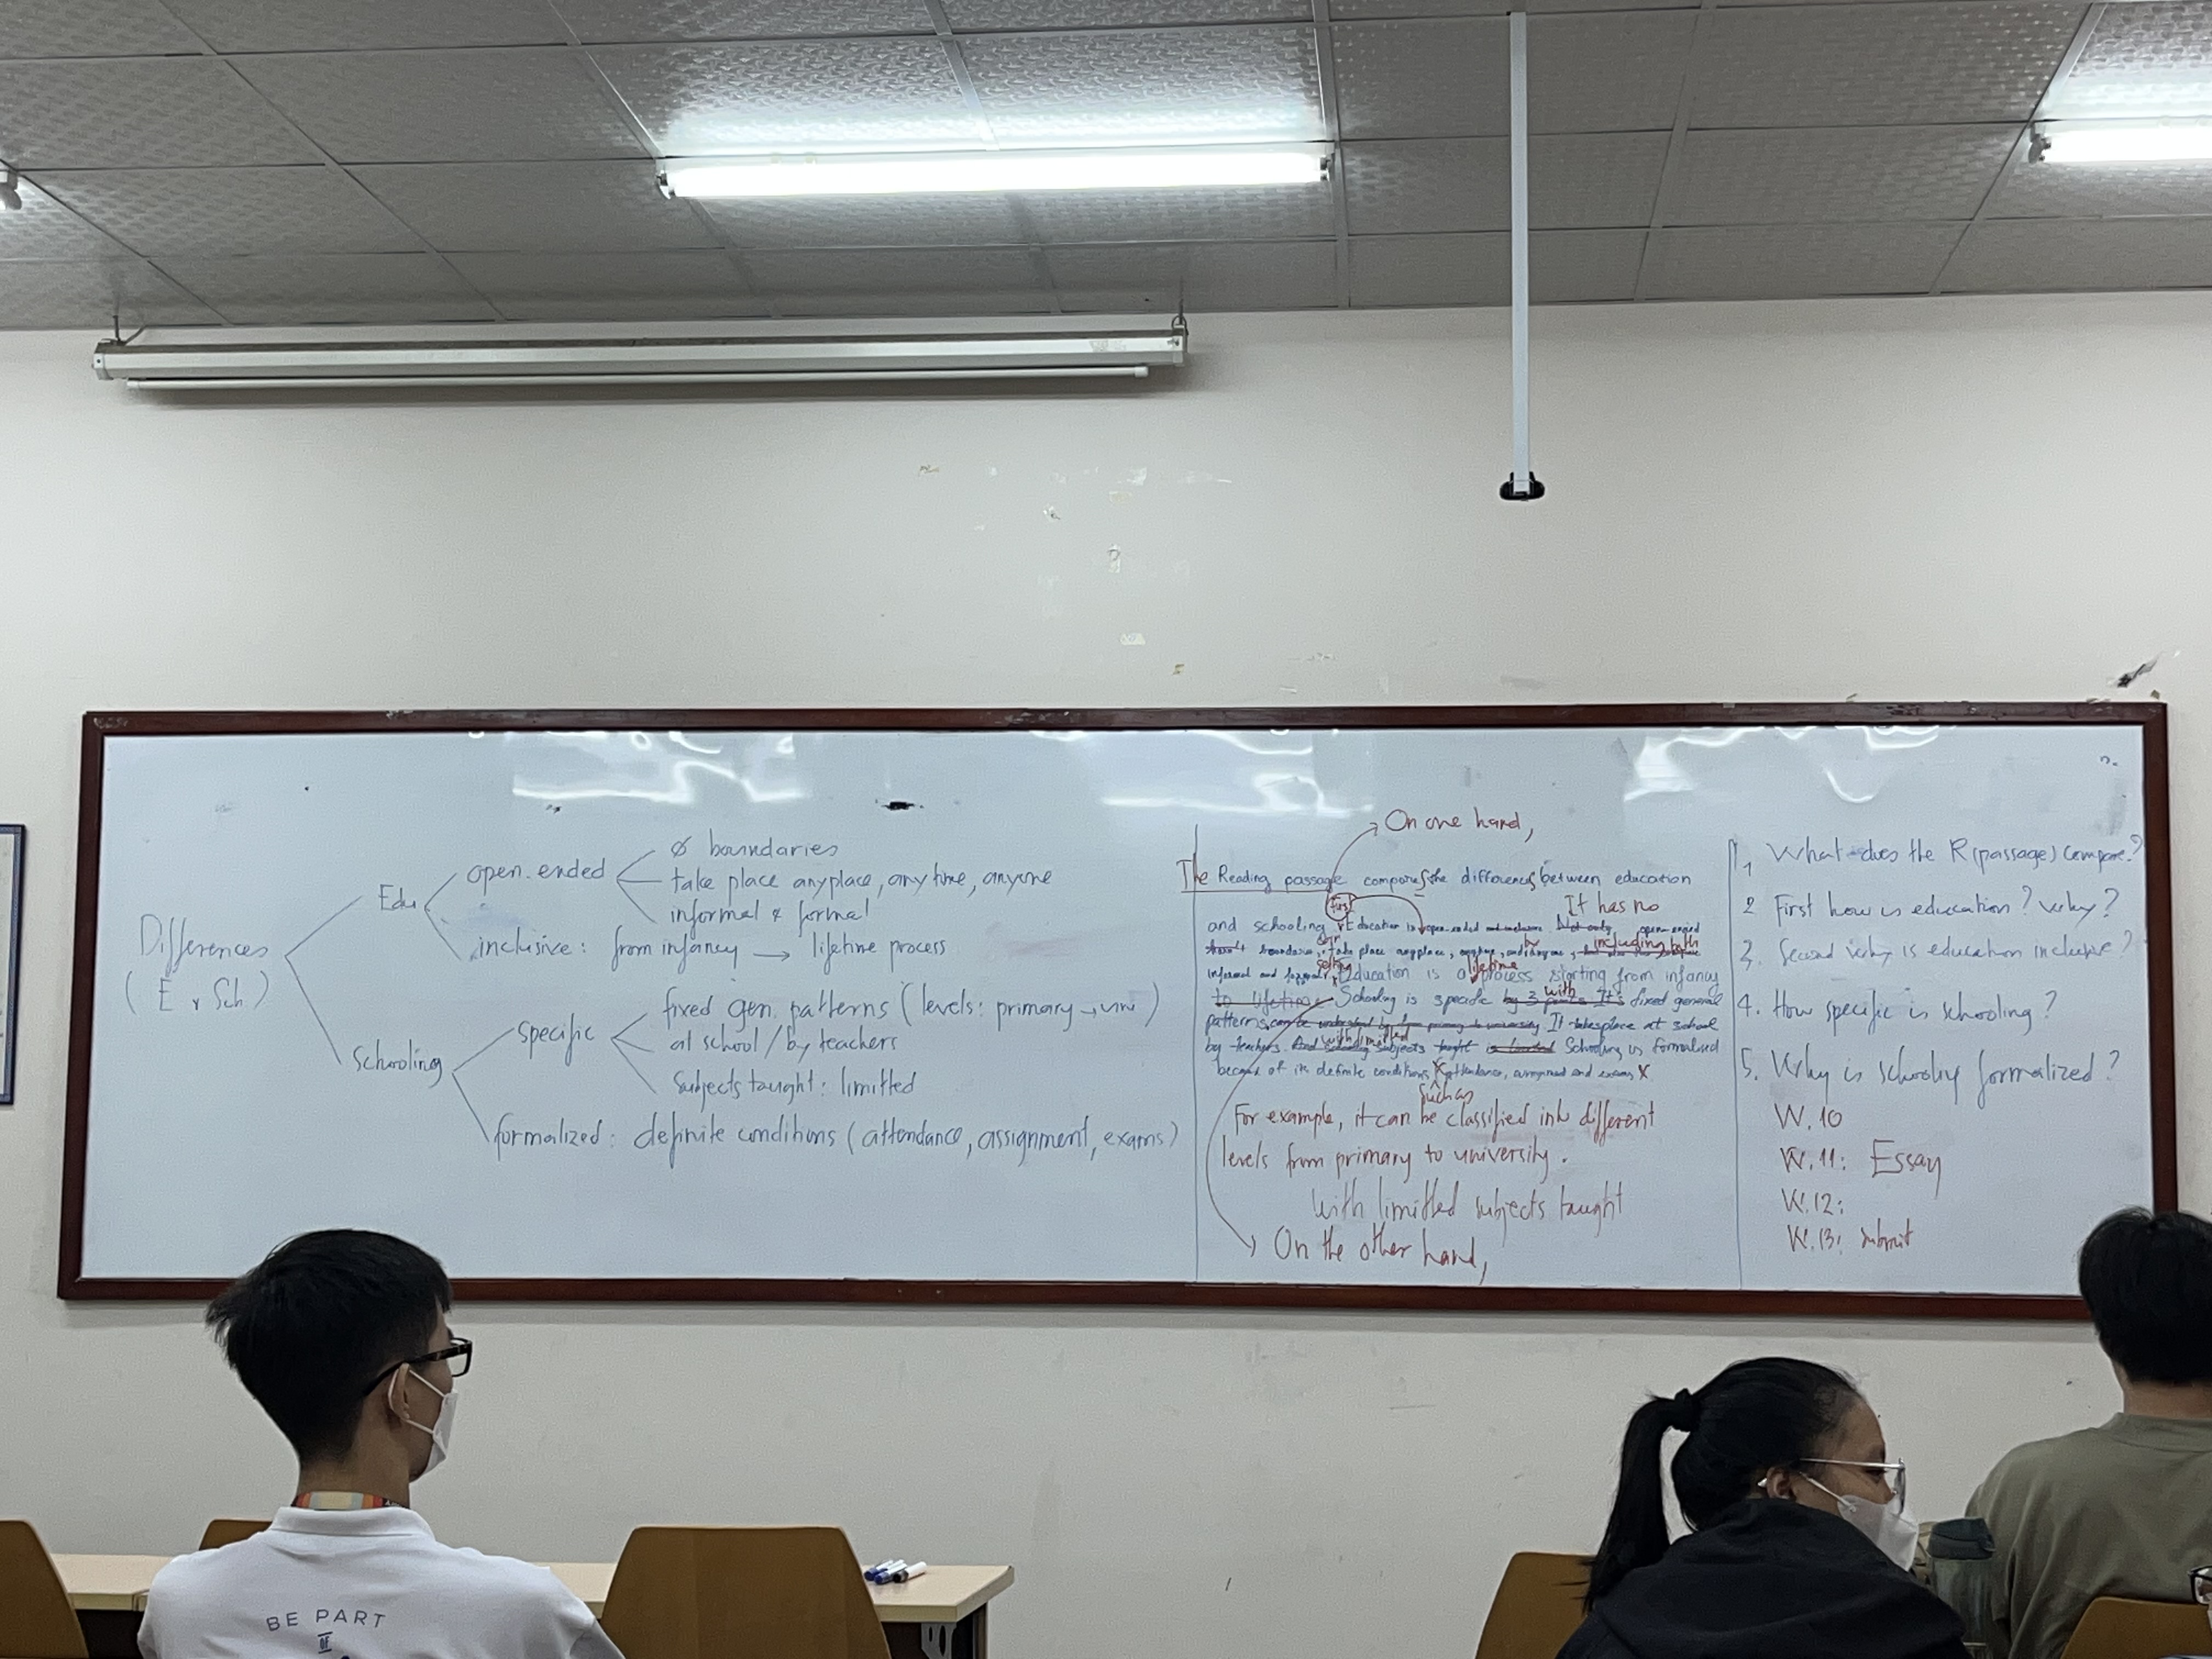 Differences
( E v Sch.)
Edu
open-ended
Ø boundaries
take place anyplace, anytime, anyone
informal & formal
inclusive: from infancy → lifetime process
Schooling
specific
fixed gen. patterns (levels: primary → uni)
at school / by teachers
Subjects taught: limitted
formalized: definite conditions (attendance, assignment, exams)
On one hand,
The Reading passage compares the differences between education
first
It has no
and schooling. Education is open-ended and inclusive. Not only open-ended
boundaries, take place anyplace, anytime, and by anyone, including both
informal and formal setting. Education is a lifetime process starting from infancy
to lifetime. Schooling is specific by 3 points It's with fixed general
patterns can be understand by from primary to university It takes place at school
by teachers. And schooling with limitted subjects taught is limited Schooling is formalised
because of its definite conditions such as attendance, assignment and exams
For example, it can be classified into different
levels from primary to university.
with limitted subjects taught
On the other hand,
1, What does the R(passage) compare?
2 First how is education? why?
3. Second why is education inclusive?
4. How specific is schooling?
5. Why is schooling formalized?
W.10
W.11: Essay
W.12:
W.13: submit
BE PART
OF